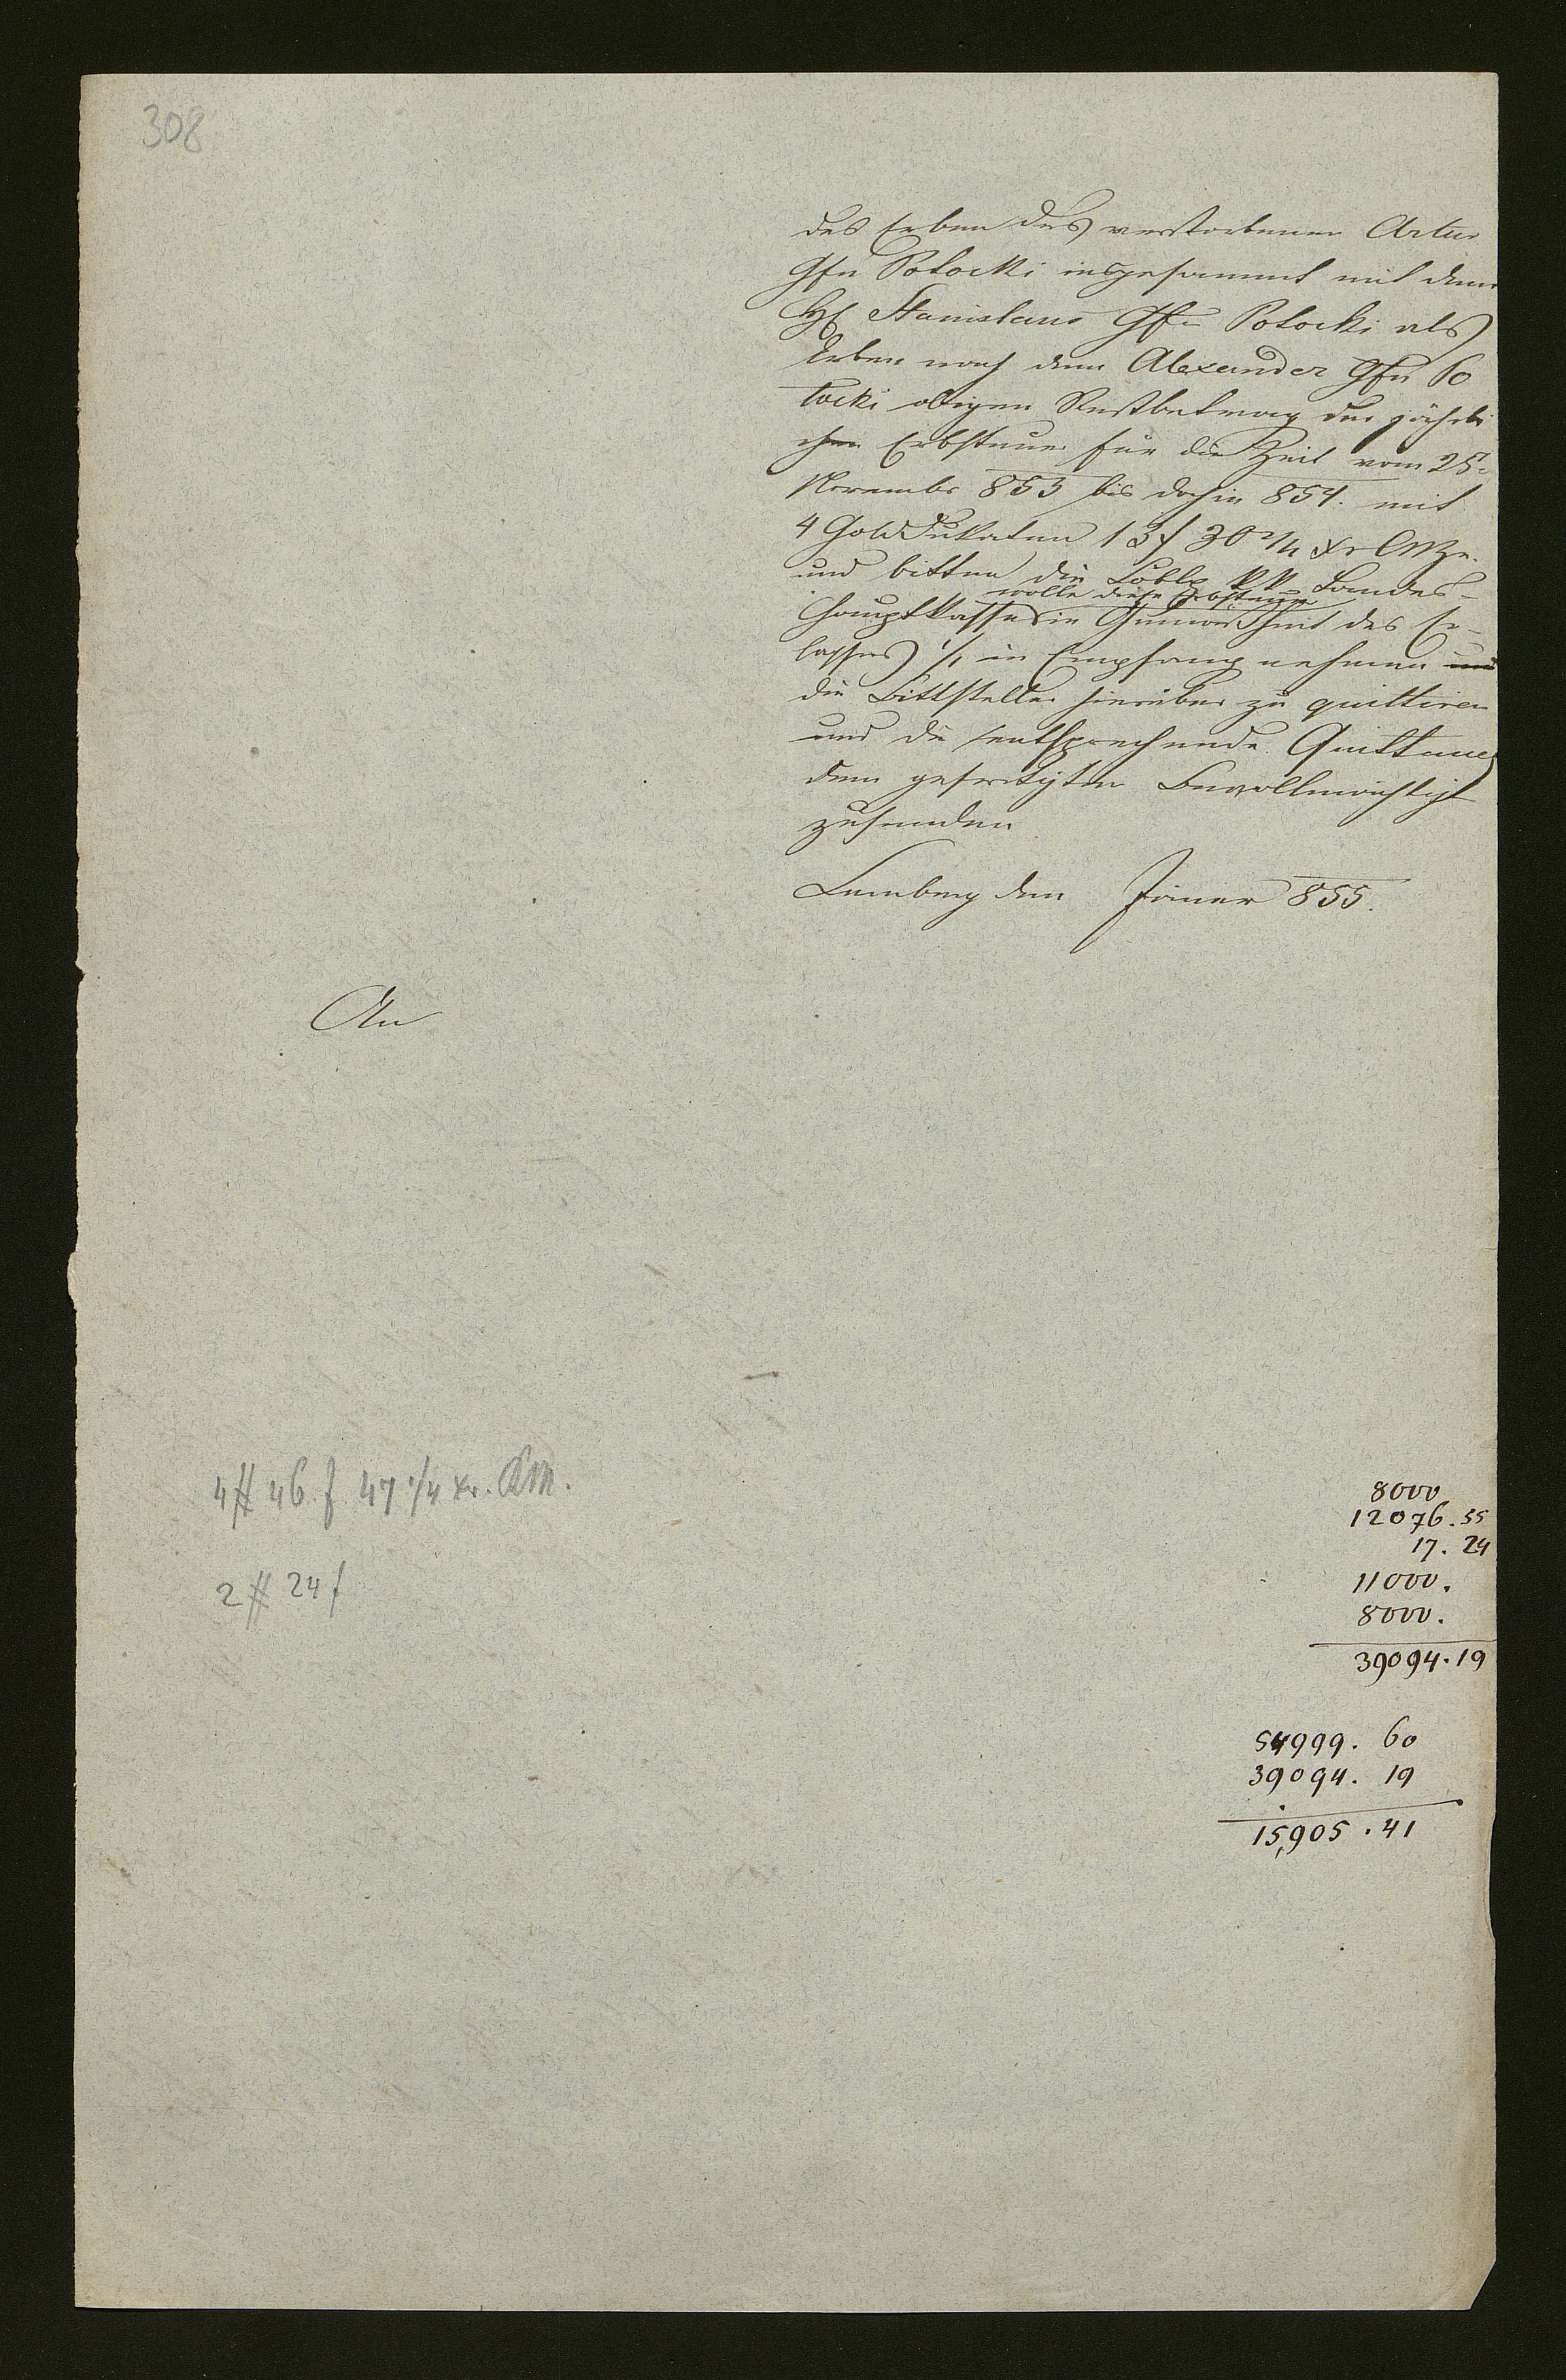 308
des Erben des verstorbenen Artur
Gfn Potocki insgesammt mit dem
H Stanislaus Gfn Potocki als
Erben nach dem Alexander Gfn Po
tocki obigen Restbetrag der jährli
chen Erbsteuer für die Zeit vom 25.
November 853 bis dahin 854. mit
4 Gold Dukaten 13 f 30 2/4 xr CMze.
und bitten die Löbl. kk Landes-
wolle diese Erbsteuer
Hauptkasse in Gemäßheit des Er-
lasses 1/1 in Empfang nehmen und
die Bittsteller hierüber zu quittiren
und die entsprechende Quittung
dem gefertigten Bevollmächtigt
zusenden
Lemberg den Jäner 855.
An
4 # 46 f 47 1/4 xr. KM.
2 # 24 f
8000
12076. 55
17. 24
11000.
8000.
39094. 19
54999. 60
39094. 19
15,905. 41